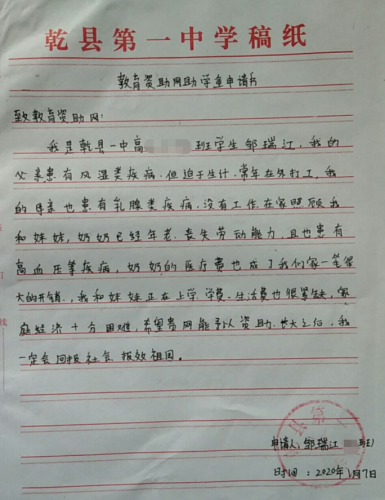 乾县第一中学稿纸
教育资助网助学金申请书
致教育资助网:
我是乾县一中高 班学生邹瑞江,我的
父亲患有风湿类疾病,但迫于生计,常年在外打工,我
的母亲也患有乳腺类疾病,没有工作,在家照顾我
和妹妹,奶奶已经年老,丧失劳动能力,且也患有
高血压等疾病,奶奶的医疗费也成了我们家一笔很
大的开销,我和妹妹正在上学,学费、生活费也很紧缺,家
庭经济十分困难,希望贵网能予以资助,长大之后,我
一定会回报社会,报效祖国。
申请人:邹瑞江 班)
时间:2020年1月7日